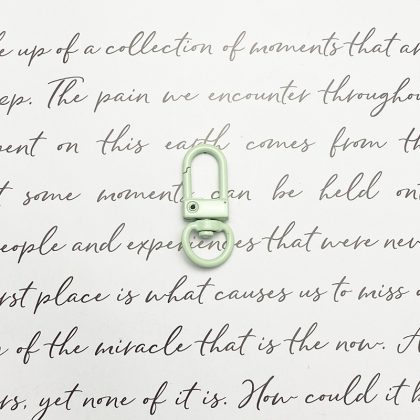 up of a collection of moments that
The pain we encounter throughou
on this earth comes from
some moments can be held
people and experiences that were nev
place is what causes us to miss
of the miracle that is the now.
yet none of it is. How could it